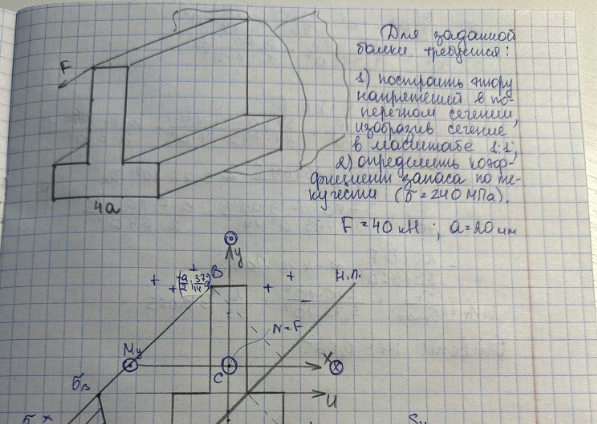 Для заданной
балки требуется:
1) построить эпюру
напряжений в по-
перечном сечении,
изобразив сечение
в масштабе 1:1;
2) определить коэф-
фициент запаса по те-
кучести (σ = 240 МПа).
F = 40 кН; a = 20 мм
F
4a
y
B
Н.Л.
+ + + +
−
N=F
My
C
x
σв
u